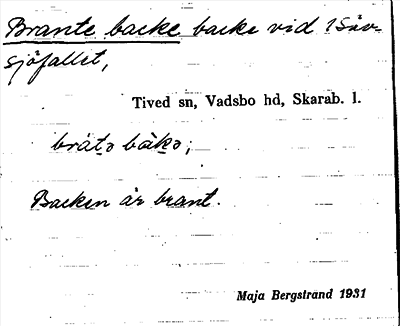 Brante backe backe vid 1 Säv-
sjöfallet,
Tived sn, Vadsbo hd, Skarab. l.
brátə bàkə;
Backen är brant.
Maja Bergstrand 1931